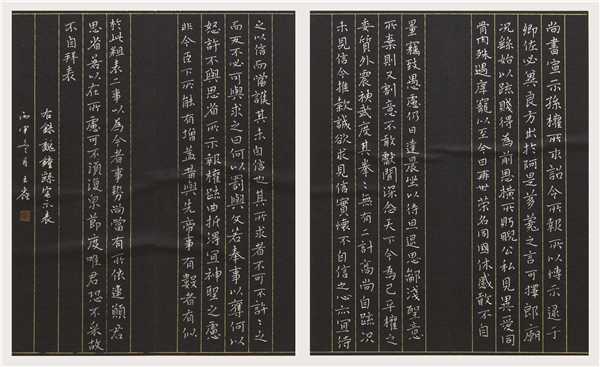 尚書宣示孫權所求詔令所報所以博示逮于
卿佐必冀良方出於阿是芻蕘之言可擇郎廟
況繇始以疏賤得為前恩橫所盼睨公私見異愛同
骨肉殊遇厚寵以至今日再世榮名同國休慼敢不自
量竊致愚慮仍日達晨坐以待旦退思鄙淺聖意
所棄則又割意不敢獻聞深念天下今為已平權之
委質外震神武度其拳〻無有二計高尚自疏況
未見信今推款誠欲求見信實懷不自信之心亦宜待
之以信而當護其未自信也其所求者不可不許〻之
而反不必可與求之曰何以罰與以奪何以
怒許不與思省所示報權疏曲折得宜神聖之慮
非今臣下所能有增益昔與先帝事有數者有似
於此粗表二事以為今者事勢尚當有所依違願君
思省若以在所慮可不須復皃節度唯君恐不采故
不自拜表
右錄魏鍾繇宣示表
丙申月王